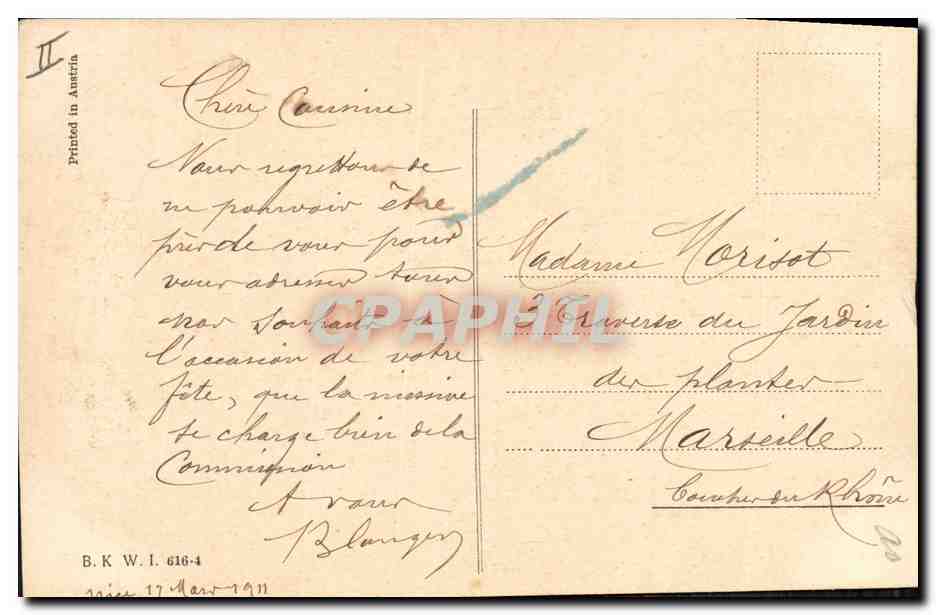 II
Printed in Austria
Chère Cousine
Nous regrettons de
ne pouvoir être
près de vous pour
vous adresser tous
nos souhaits à
l'occasion de votre
fête, que la missive
se charge bien de la
Commission
A vous
B. K. W. I. 616-4
Nice 17 Mars 1911
Madame Morisot
3 Traverse du Jardin
des plantes
Marseille
Bouches du Rhône
CPAPHIL